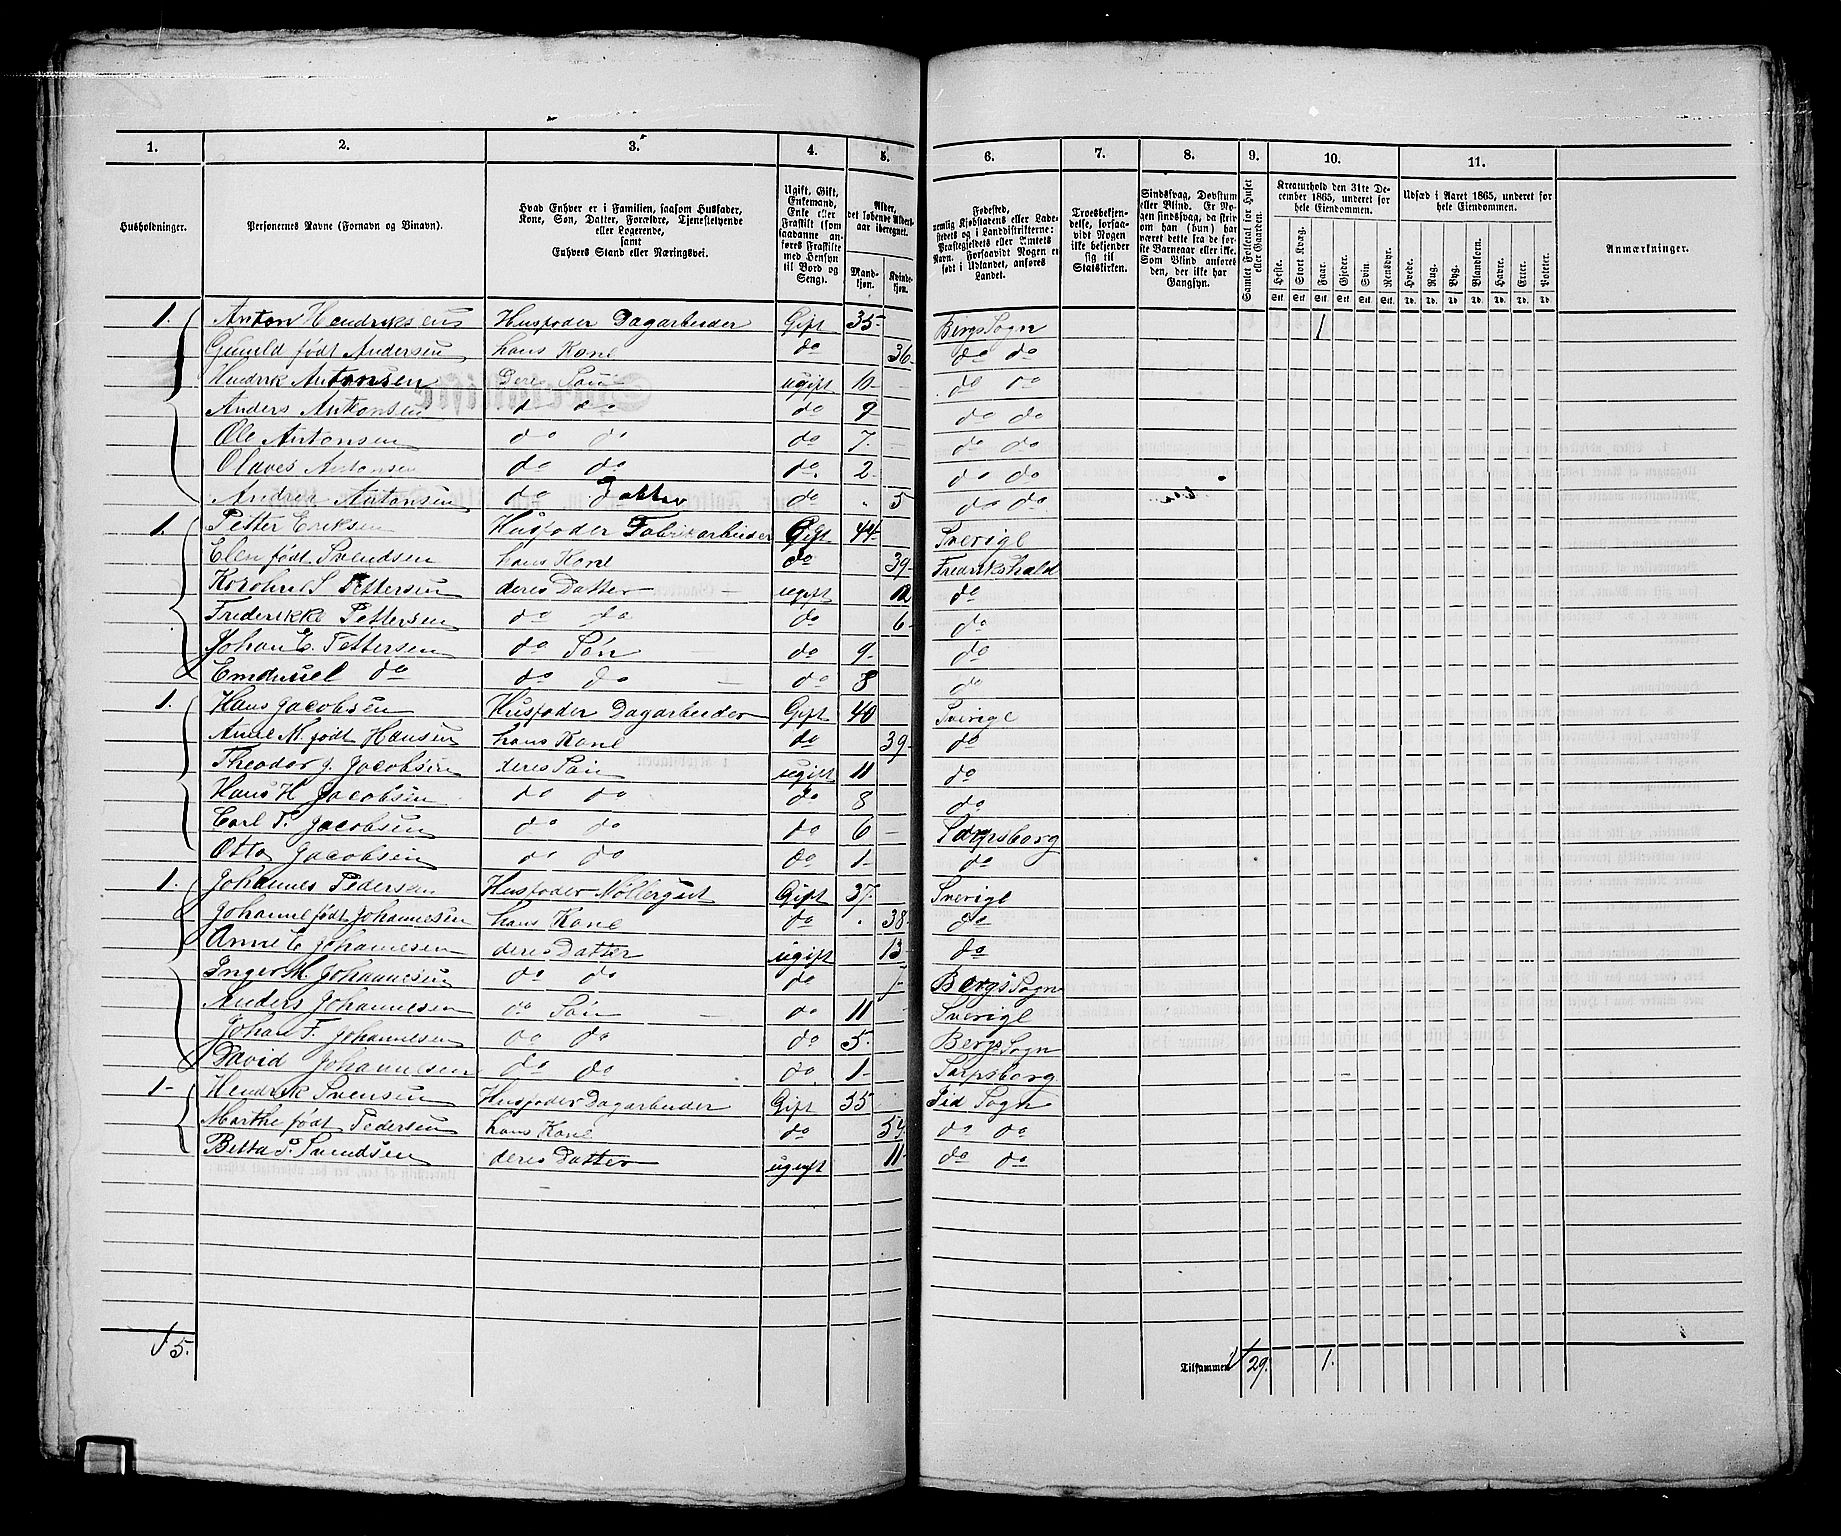 1. 2. 3. 4. 5. 6. 7. 8. 9. 10. 11.
Husholdninger.
Personernes Navne (Fornavn og Tilnavn).
Hvad Enhver er i Familien, saasom Husfader, Kone, Søn, Datter, Forældre, Tjenestetyende eller Logerende, samt Enhvers Stand eller Næringsvei.
Ugift, Gift, Enkemand, Enke eller Fraskilt (som saadanne anføres Fraskilte med Hensyn til Bord og Seng).
Alder, det løbende Alders-aar iberegnet.
Mandkjøn. Kvindekjøn.
Fødested, nemlig Kjøbstadens eller Ladestedets og i Landdistrikterne: Præstegjeldets eller Amtets Navn. Forsaavidt Nogen er født i Udlandet, anføres Landet.
Troesbekjendelse, forsaavidt Nogen ikke bekjender sig til Statskirken.
Sindssvag, Døvstum eller Blind. Er Nogen sindssvag, da skrives om han (hun) har været dette fra de første Barneaar eller ikke. Som Blind anføres den, der ikke har Gangsyn.
Samlet Folketal for Huset eller Gaarden.
Kreaturhold den 31te December 1865, underet for hele Eiendommen.
Heste. Stort Kvæg. Faar. Gjeder. Svin. Rensdyr.
Stk. Stk. Stk. Stk. Stk. Stk.
Udsæd i Aaret 1865, underet for hele Eiendommen.
Hvede. Rug. Byg. Blandkorn. Havre. Erter. Poteter.
Td. Td. Td. Td. Td. Td. Td.
Anmærkninger.
1. Anton Hendriksen Husfader Dagarbeider Gift 35 Bergs Sogn 1
født Andersen hans Kone do 36 do do
Antonsen deres Søn ugift 10 do do
Anders Antonsen do do do 9 do do
Ole Antonsen do do do 7 do do
Olaves Antonsen do do do 2 do do
Andrea Antonsen do Datter do 5 do do
1. Petter Eriksen Husfader Fabrikarbeider Gift 44 Sverige
Elen født Svendsen hans Kone do 39 Fredrikshald
Pettersen deres Datter ugift 12 do
Frederikke Pettersen do do do 6 do
Johan E. Pettersen do Søn do 9 do
Emanuel do do do do 8 do
1. Hans Jacobsen Husfader Dagarbeider Gift 40 Sverige
Anne M. født Hansen hans Kone do 39 do
Theodor J. Jacobsen deres Søn ugift 11 do
Hans H. Jacobsen do do do 8 do
Carl T. Jacobsen do do do 6 Sarpsborg
Otto Jacobsen do do do 1 do
1. Johannes Pedersen Husfader Møllergut Gift 37 Sverige
Johanne født Johannesen hans Kone do 38 do
Anne E. Johannesen deres Datter ugift 13 do
Inger M. Johannesen do do do 7 Bergs Sogn
Anders Johannesen do Søn do 11 Sverige
Johan F. Johannesen do do do 5 Bergs Sogn
David Johannesen do do do 1 Sarpsborg
1 Hendrik Svensen Husfader Dagarbeider Gift 55 Id Sogn
Marthe født Pedersen hans Kone do 54 do do
Svendsen deres Datter ugift 11 do do
5. Tilsammen 29. 1.